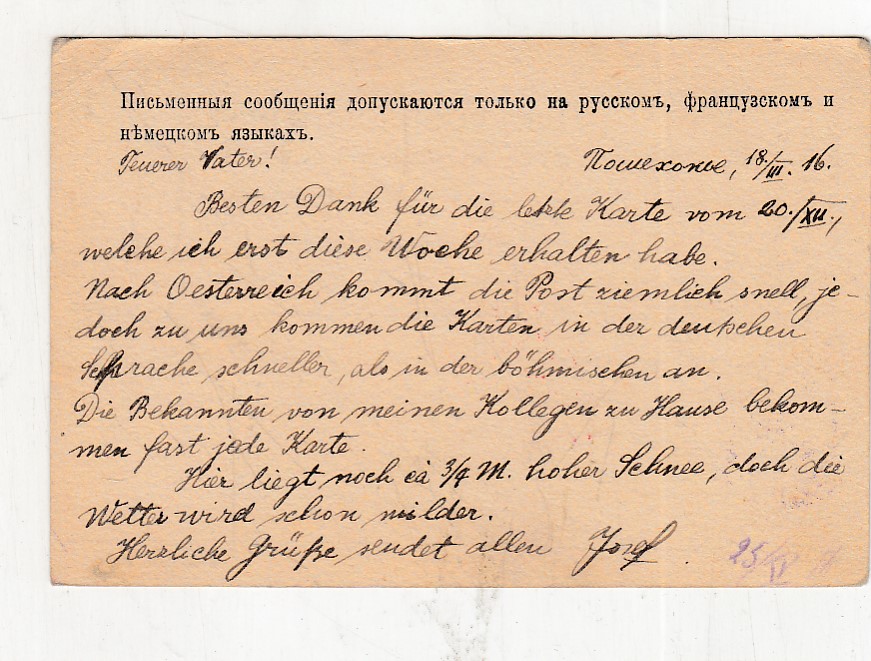 Письменныя сообщенія допускаются только на русскомъ, французскомъ и
нѣмецкомъ языкахъ.
Teuerer Vater! Пошехонье, 18./III. 16.
Besten Dank für die letzte Karte vom 20./XII.,
welche ich erst diese Woche erhalten habe.
Nach Oesterreich kommt die Post ziemlich snell, je-
doch zu uns kommen die Karten in der deutschen
Sprache schneller, als in der böhmischen an.
Die Bekannten von meinen Kollegen zu Hause bekom-
men fast jede Karte.
Hier liegt noch cà 3/4 M. hoher Schnee, doch die
Wetter wird schon milder.
Herzliche Grüße sendet allen Josef